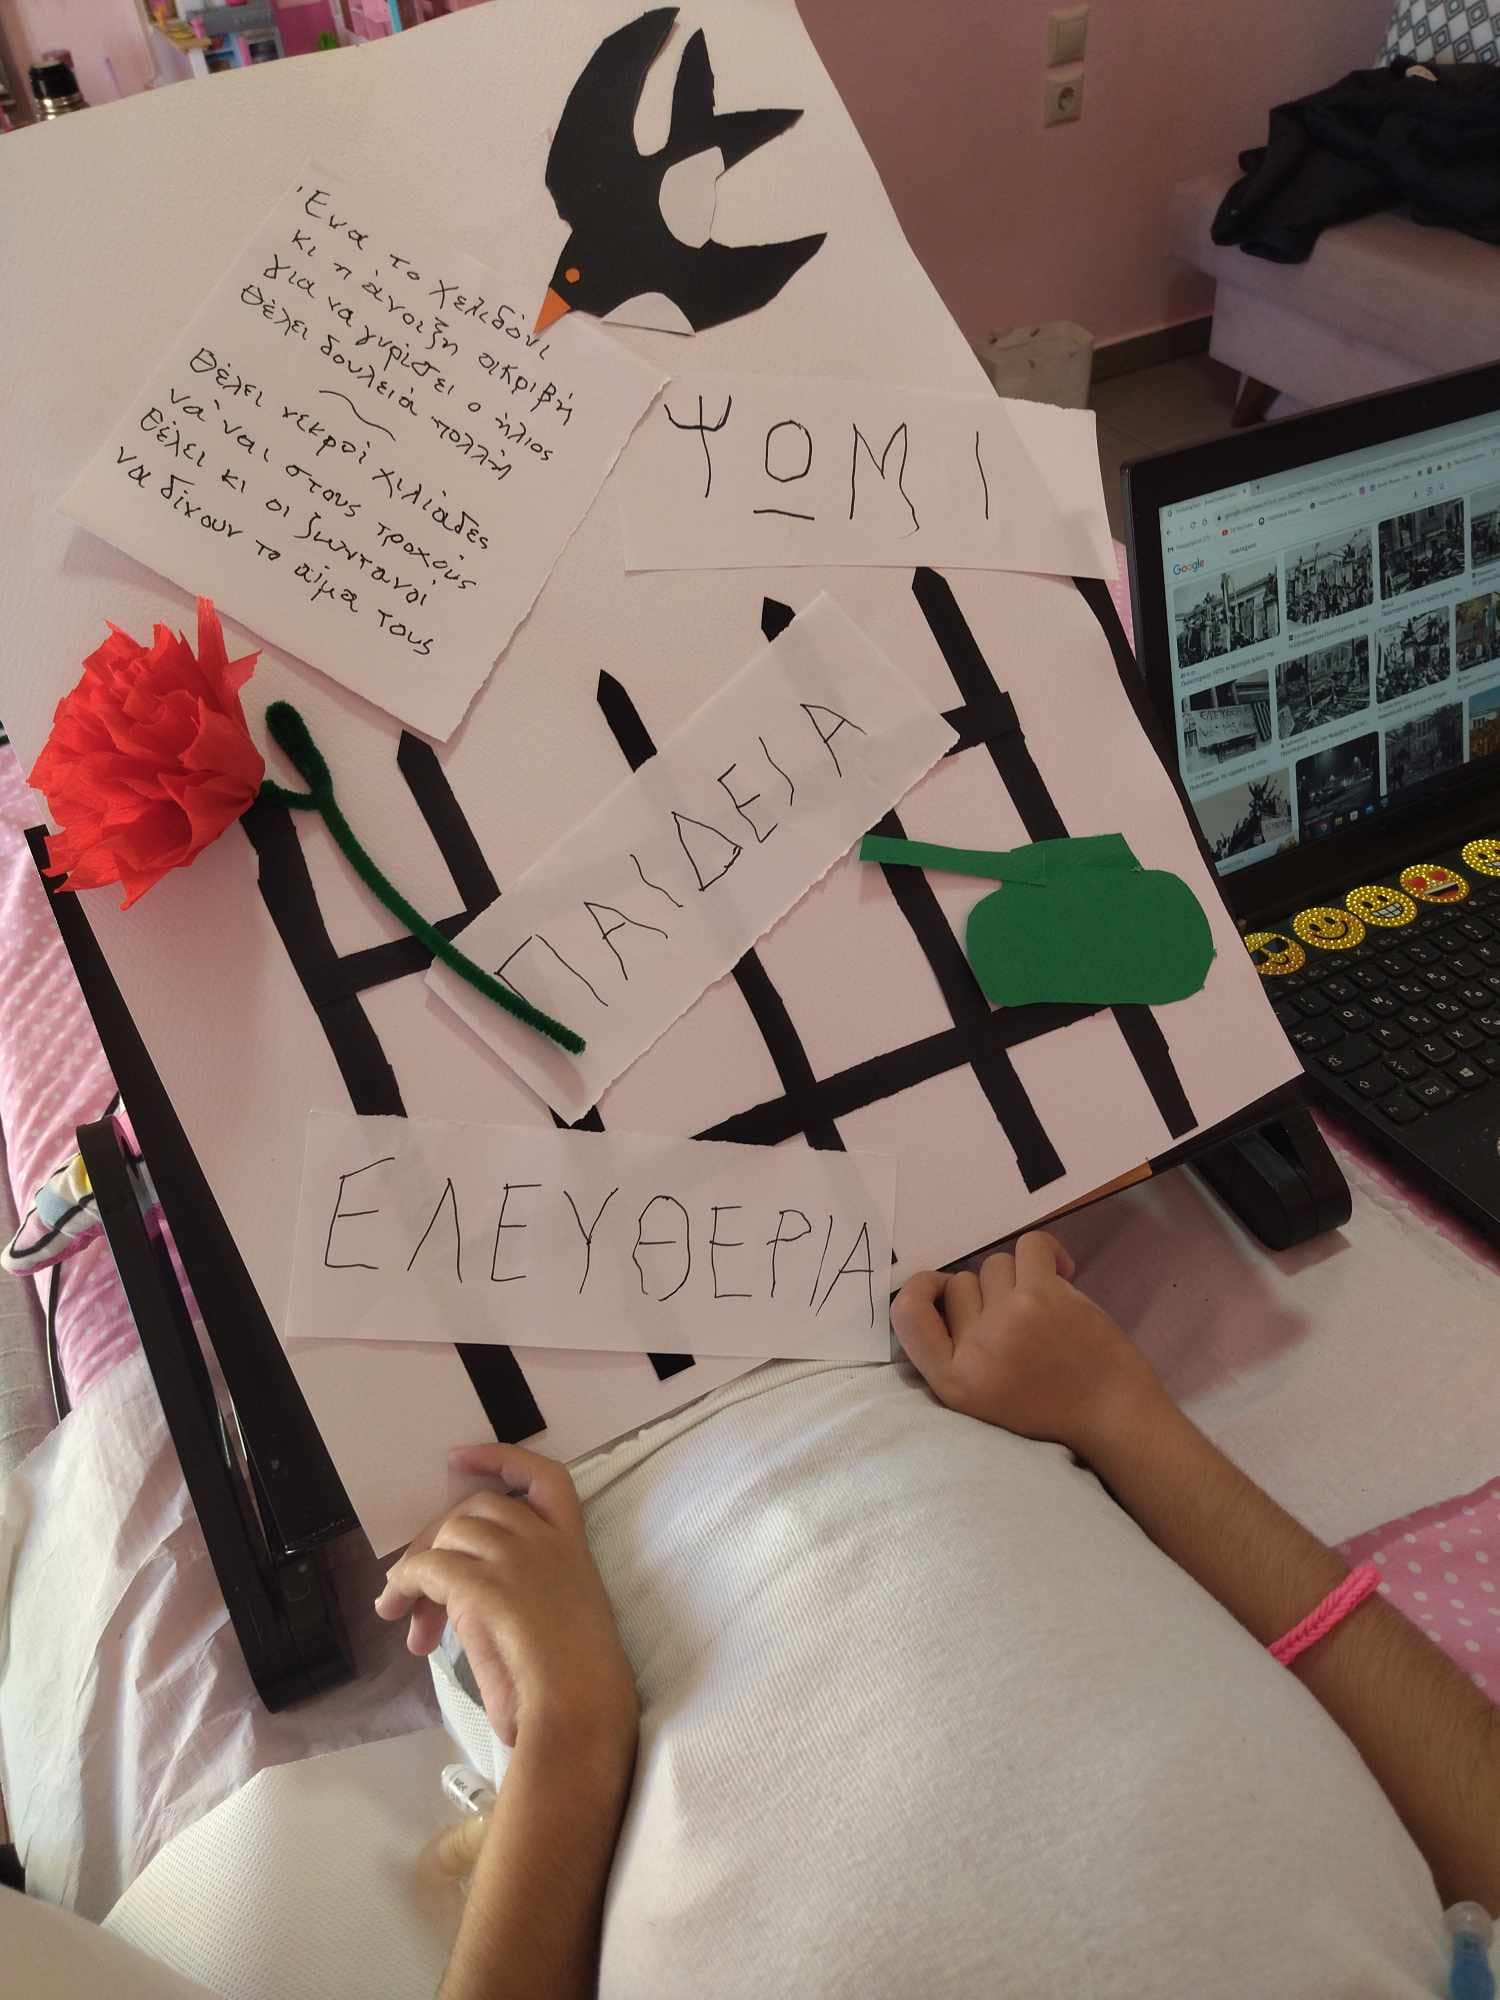 Ένα το χελιδόνι
κι η άνοιξη ακριβή
για να γυρίσει ο ήλιος
θέλει δουλειά πολλή
θέλει νεκροί χιλιάδες
νά 'ναι στους τροχούς
θέλει κι οι ζωντανοί
να δίνουν το αίμα τους
ΨΩΜΙ
ΠΑΙΔΕΙΑ
ΕΛΕΥΘΕΡΙΑ
Google